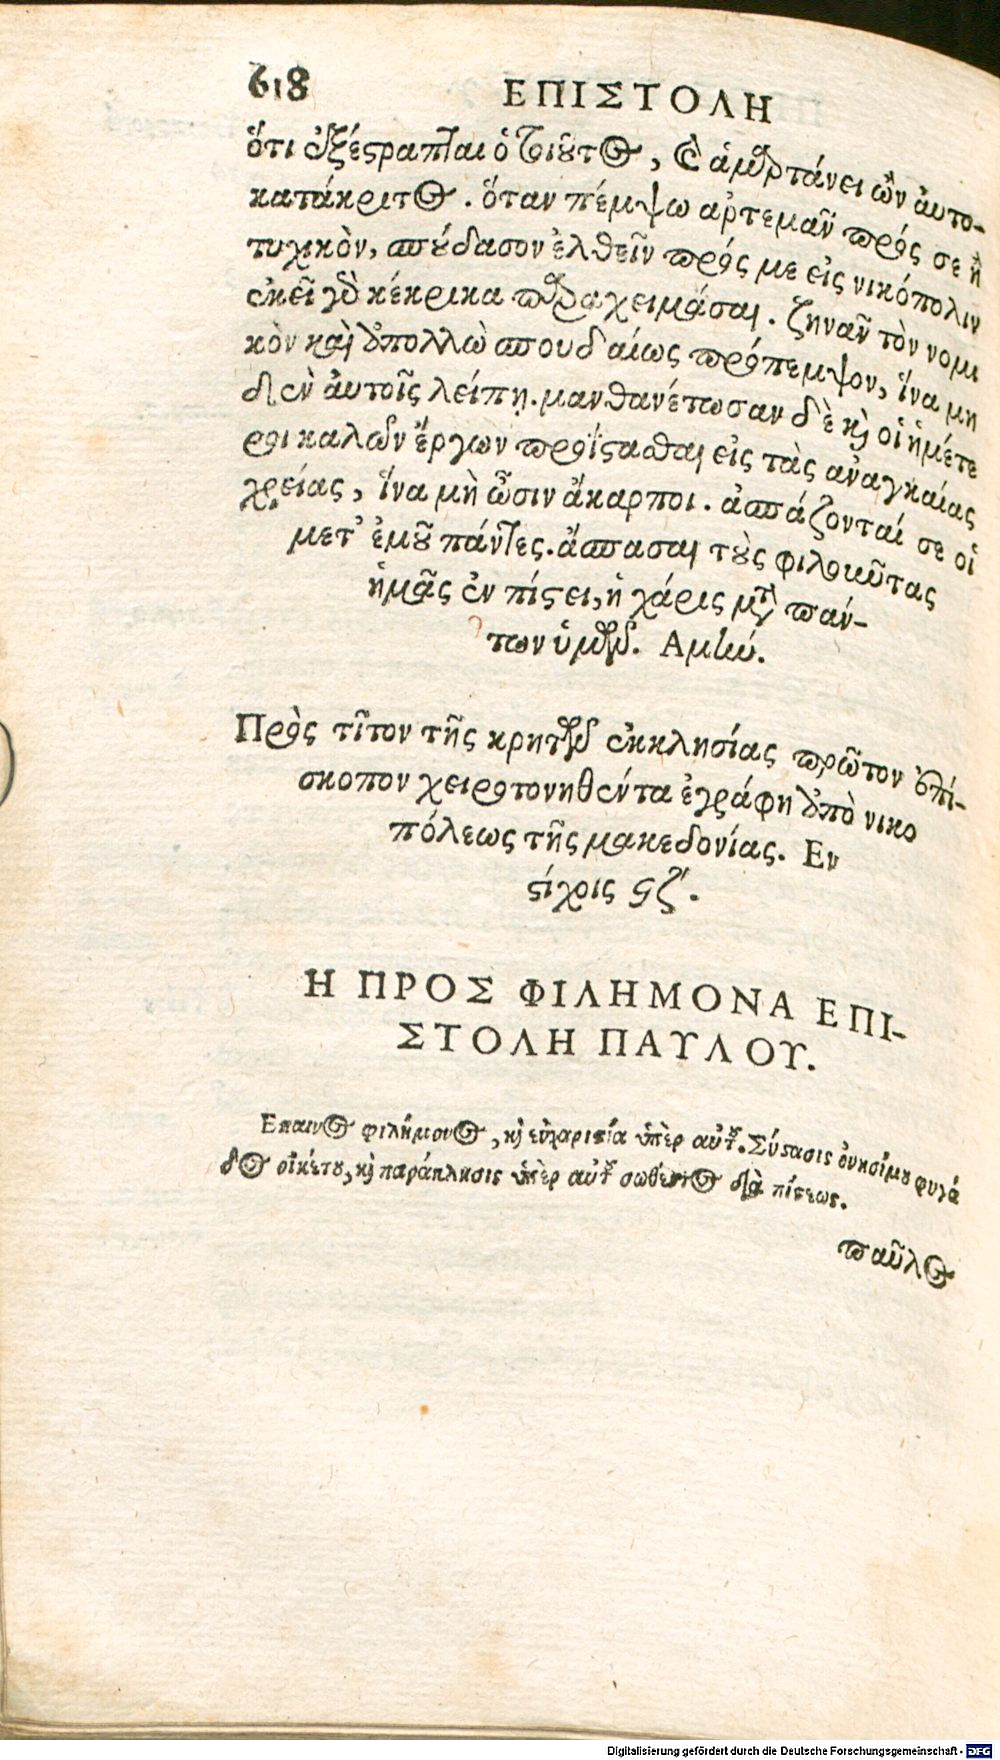 618
ΕΠΙΣΤΟΛΗ
ὅτι ἐξέστραπται ὁ τοιοῦτος, καὶ ἁμαρτάνει ὢν ἀυτο-
κατάκριτος. ὅταν πέμψω αρτεμᾶν πρός σε ἢ
τυχικὸν, σπούδασον ἐλθεῖν πρός με εἰς νικόπολιν
ἐκεῖ γὰρ κέκρικα παραχειμάσαι. ζηνᾶν τὸν νομι
κὸν καὶ ἀπολλὼ σπουδαίως πρόπεμψον, ἵνα μη
δὲν ἀυτοῖς λείπῃ. μανθανέτωσαν δὲ καὶ οἱ ἡμέτε
ροι καλῶν ἔργων προΐστασθαι εἰς τὰς ἀναγκαίας
χρείας, ἵνα μὴ ὦσιν ἄκαρποι. ἀσπάζονταί σε οἱ
μετ' ἐμοῦ πάντες. ἄσπασαι τοὺς φιλοῦντας
ἡμᾶς ἐν πίστει, ἡ χάρις μετὰ πάν-
των ὑμῶν. Αμήν.
Πρὸς τῖτον τῆς κρητῶν ἐκκλησίας πρῶτον ἐπί-
σκοπον χειροτονηθέντα ἐγράφη ἀπὸ νικο
πόλεως τῆς μακεδονίας. Εν
στίχοις ϛζ'.
Η ΠΡΟΣ ΦΙΛΗΜΟΝΑ ΕΠΙ-
ΣΤΟΛΗ ΠΑΥΛΟΥ.
Επαινος φιλήμονος, καὶ εὐχαριστία ὑπὲρ αὐτοῦ. Σύστασις ὀνησίμου φυγά
δος οἰκέτου, καὶ παράκλησις ὑπὲρ αὐτοῦ σωθέντος διὰ πίστεως.
παῦλος
Digitalisierung gefördert durch die Deutsche Forschungsgemeinschaft - DFG